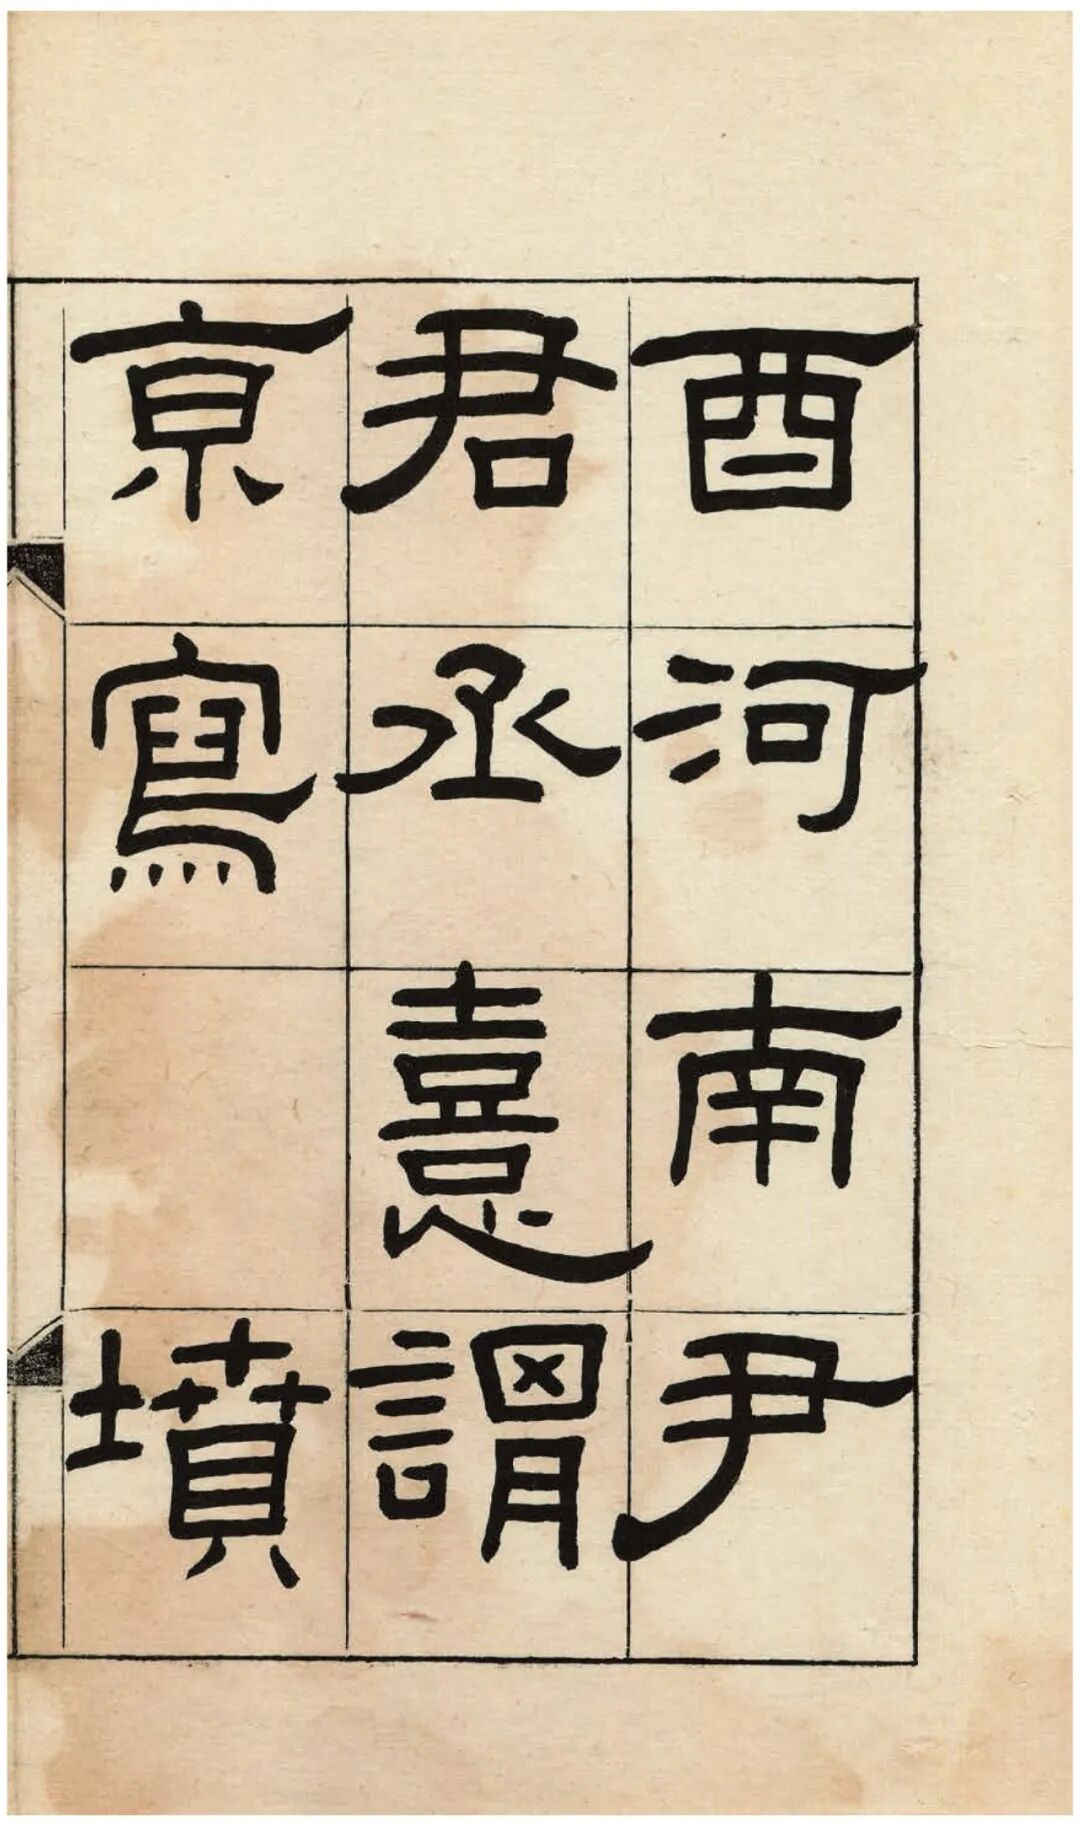 酉河南尹
君丞憙謂
亰寫 墳